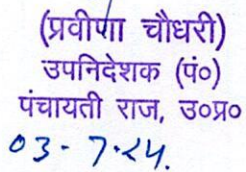 (प्रवीणा चौधरी)
उपनिदेशक (पं०)
पंचायती राज, उ०प्र०
03-7-24.